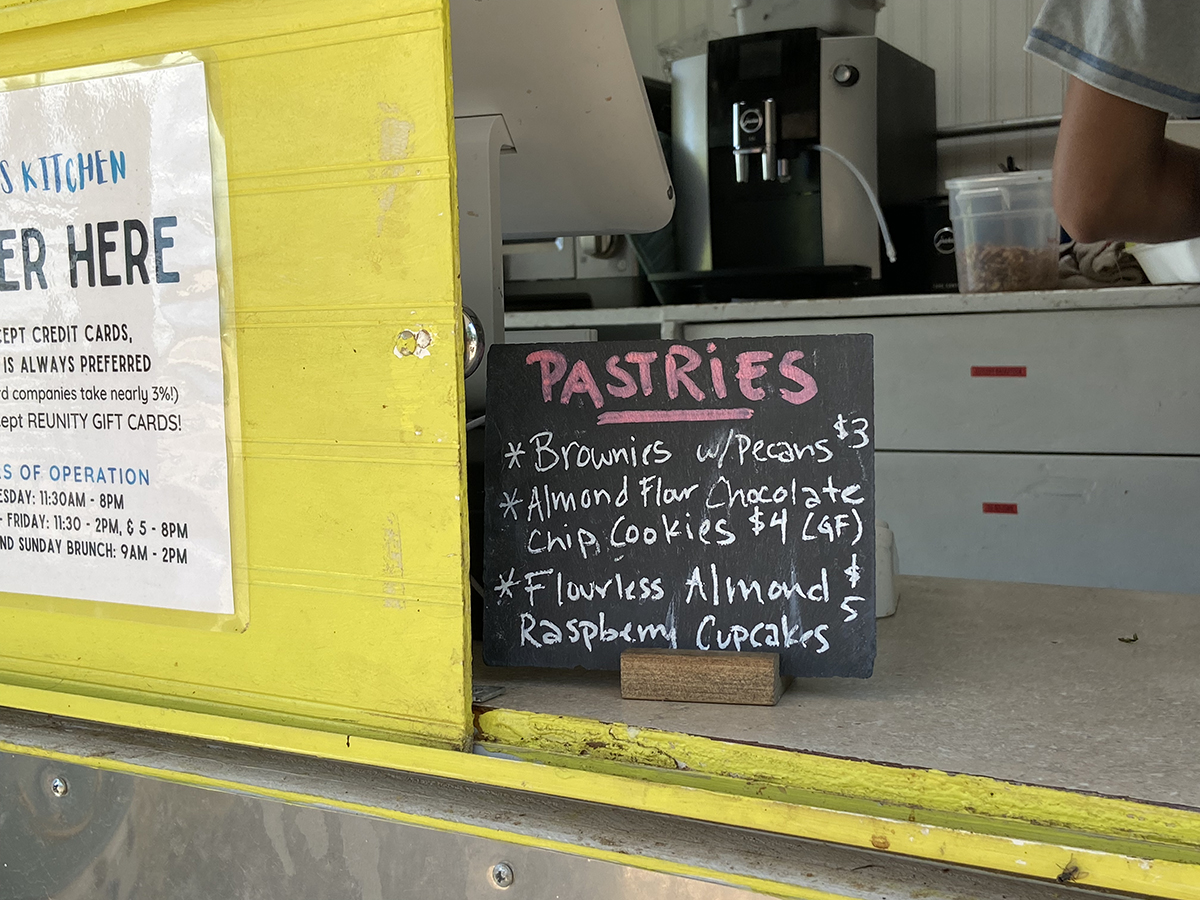 S KITCHEN
ER HERE
CEPT CREDIT CARDS,
IS ALWAYS PREFERRED
rd companies take nearly 3%!)
cept REUNITY GIFT CARDS!
RS OF OPERATION
ESDAY: 11:30AM - 8PM
- FRIDAY: 11:30 - 2PM, & 5 - 8PM
ND SUNDAY BRUNCH: 9AM - 2PM
PASTRiES
* Brownies w/Pecans $3
* Almond Flour Chocolate
Chip Cookies $4 (GF)
* Flourless Almond $5
Raspberry Cupcakes
jura